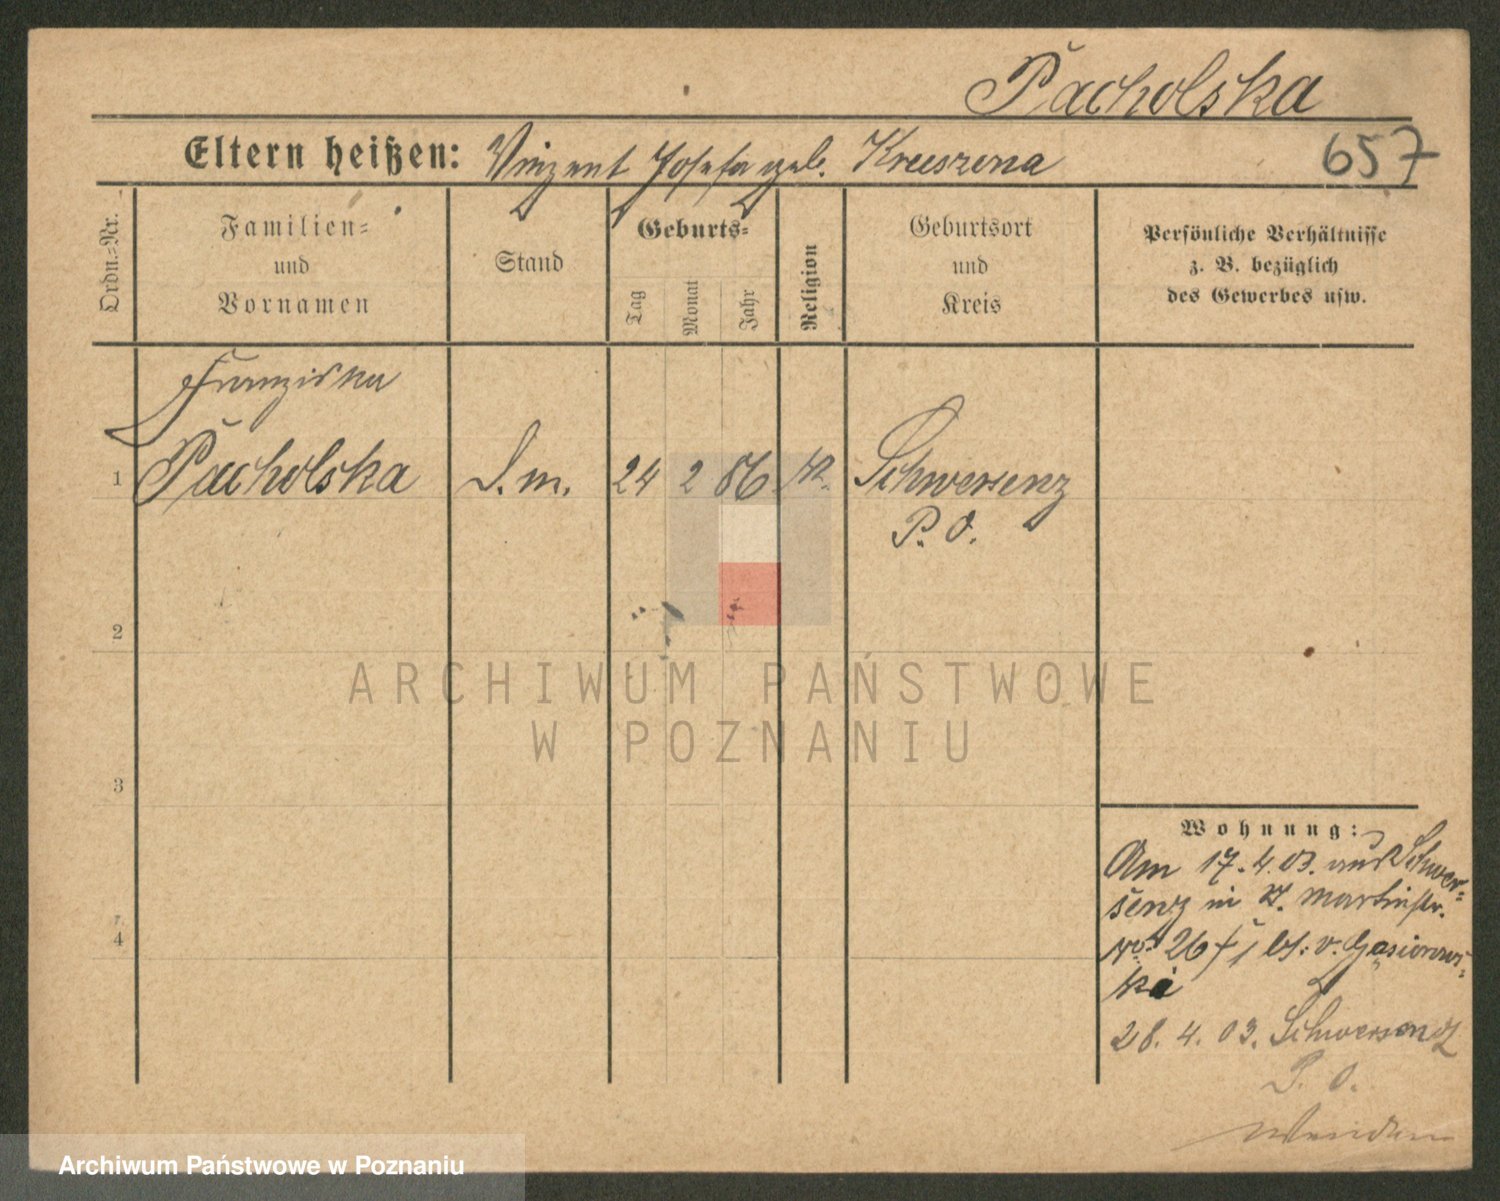 Pacholska
Eltern heißen: Vinzent Josefa geb. Kreeszona
657
Ordn.-Nr.
Familien-
und
Vornamen
Stand
Geburts-
Tag
Monat
Jahr
Religion
Geburtsort
und
Kreis
Persönliche Verhältnisse
z. B. bezüglich
des Gewerbes usw.
Franziska
1 Pacholska D.m. 24 2 86 K. Schwersenz
P. O.
2
3
4
Wohnung:
Am 17.4.03. aus Schwer-
senz in St. Martinstr.
No. 26 bf: v. Gąsiorows-
ka
28. 4. 03. Schwersenz
P. O.
Wenden
ARCHIWUM PAŃSTWOWE
W POZNANIU
Archiwum Państwowe w Poznaniu